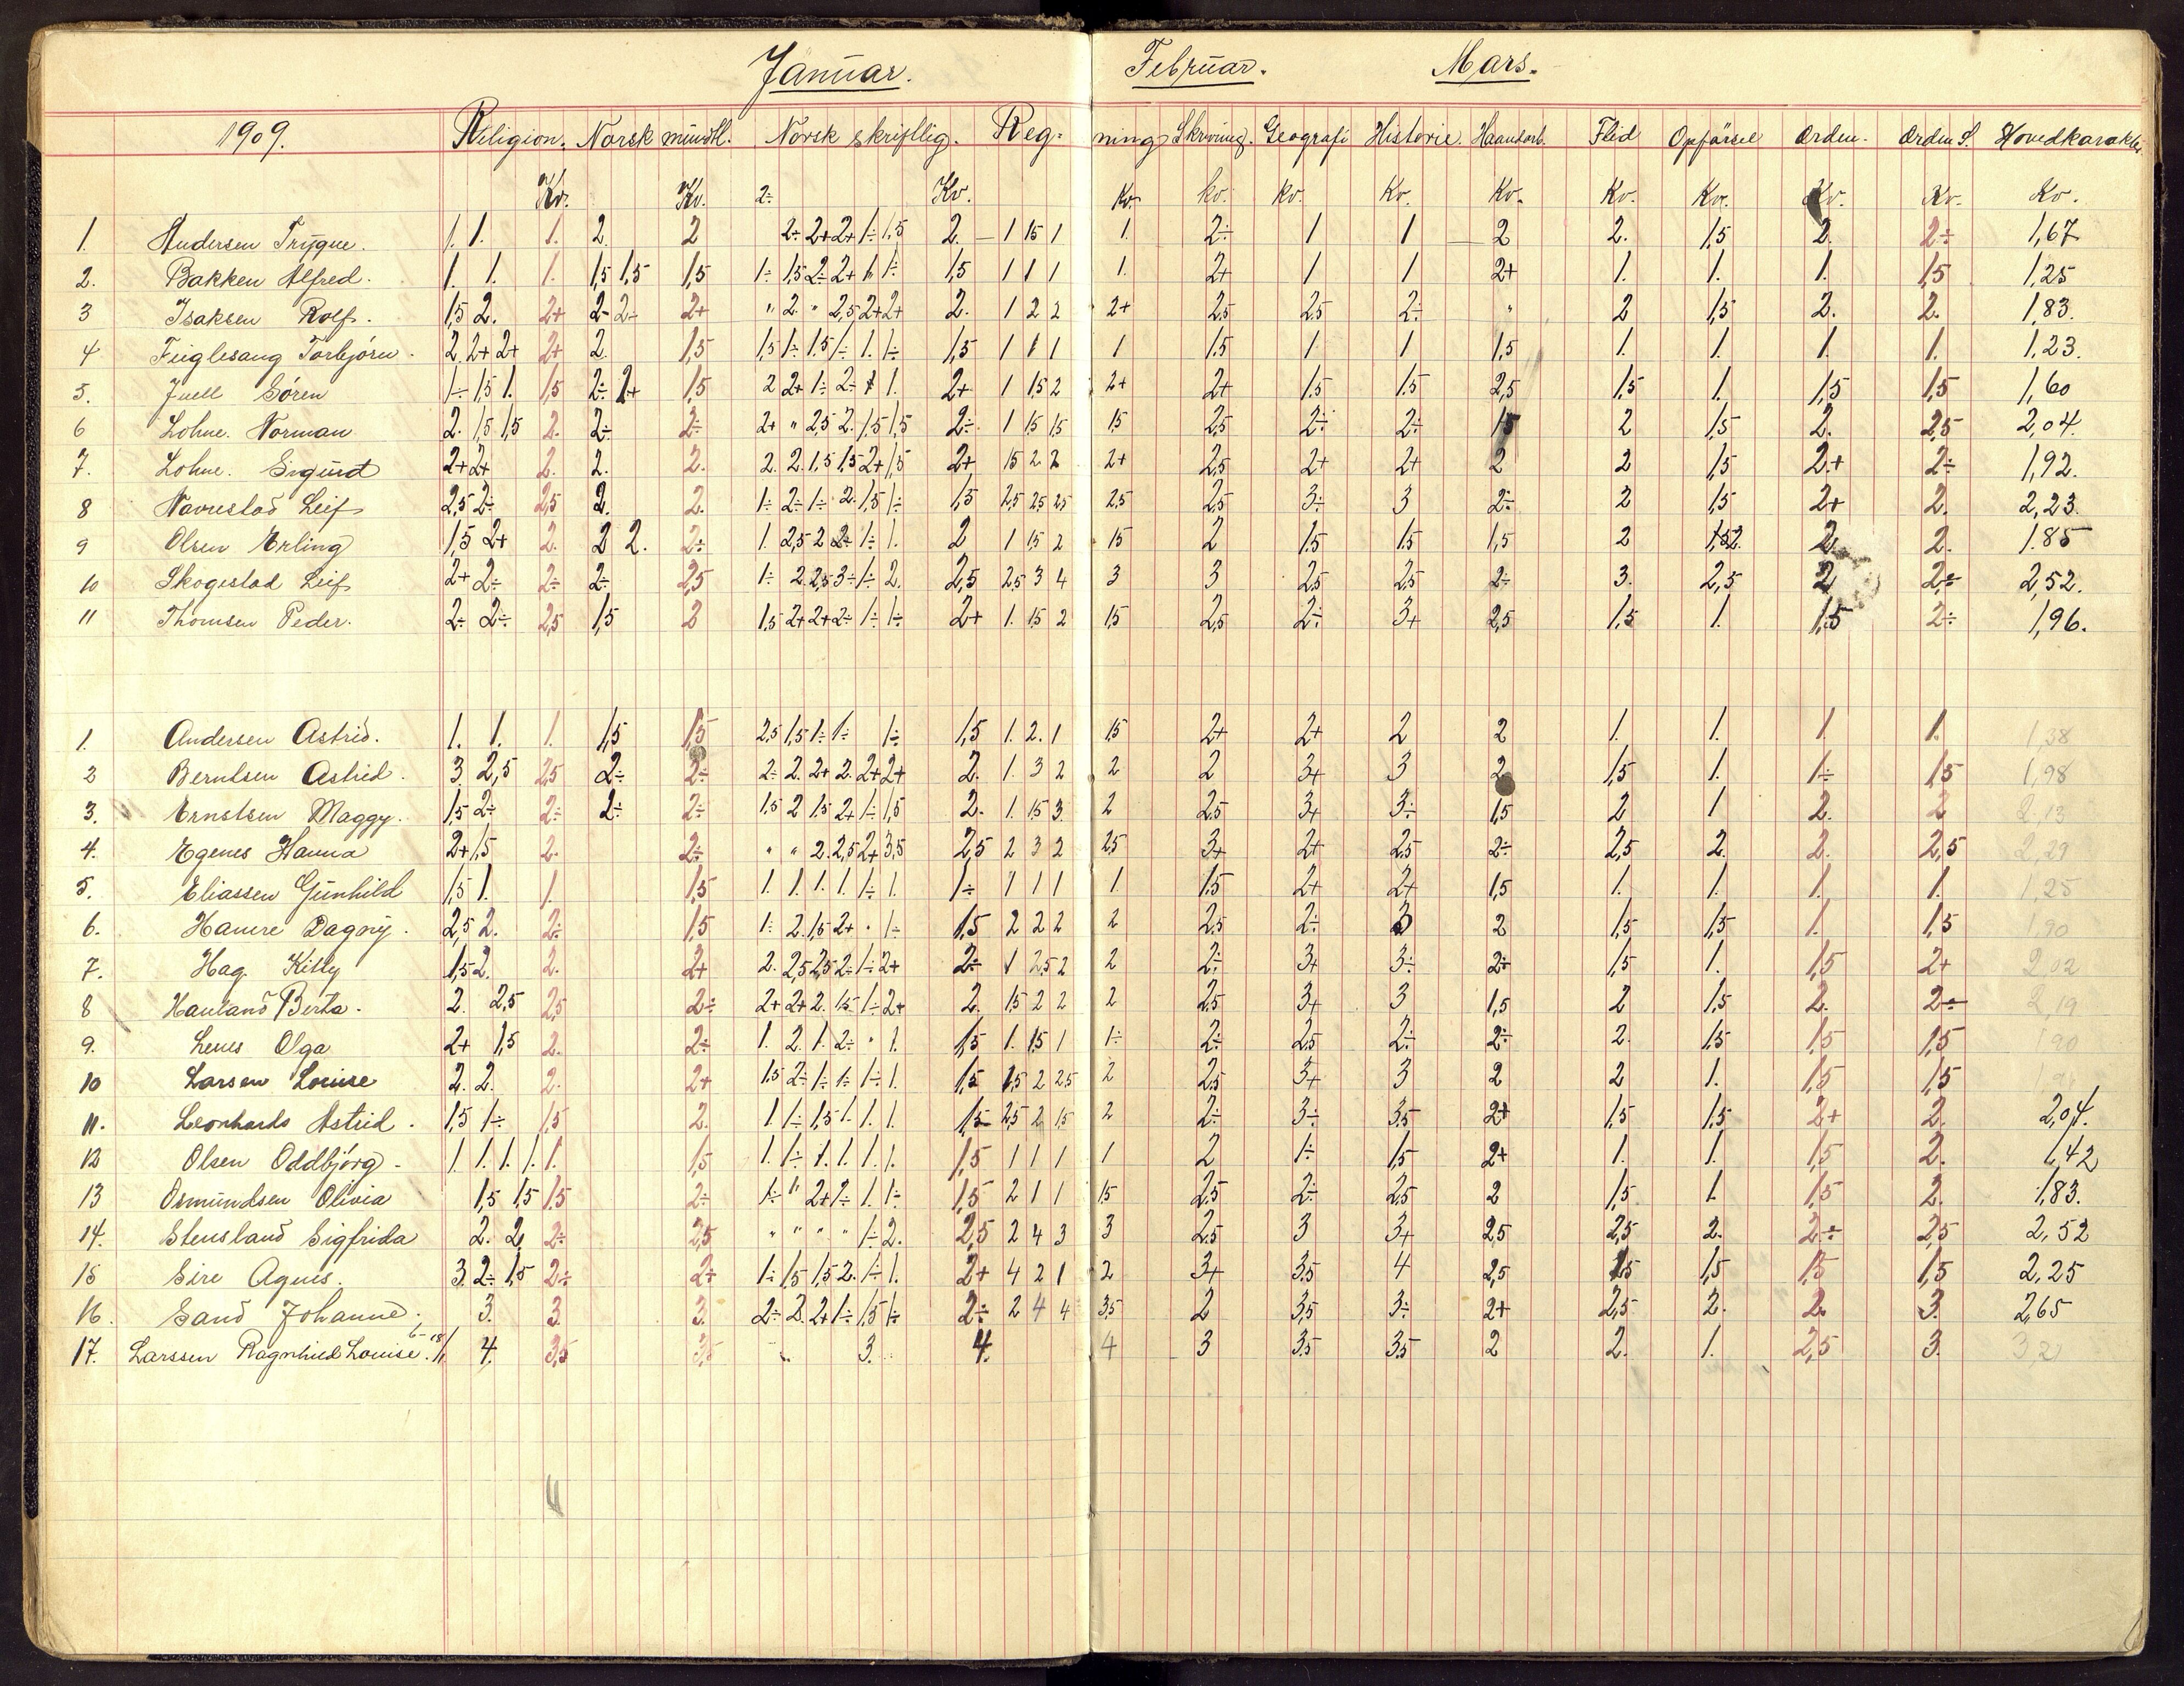 Januar. Februar. Mars.
1909. Religion. Norsk mündtl. Norsk skriftlig. Reg- ning Skrivning. Geografi Historie. Haandarb. Flid Opførsel Orden. Orden S. Hovedkarakter
Kv. Kv. 2÷ Kv. Kv. Kv. Kv. Kv. Kv. Kv. Kv. Kv. Kv. Kv.
1. Andersen Trygve. 1. 1. 1. 2. 2 2÷ 2+ 2+ 1÷ 1,5 2. 1 15 1 1. 2÷ 1 1 2 2. 1,5 2. 2÷ 1,67
2. Bakken Alfred. 1. 1. 1. 1,5 1,5 1,5 1÷ 1,5 2÷ 2+ 1. 1÷ 1,5 1 1 1 1. 2+ 1 1 2+ 1. 1. 1. 1,5 1,25
3 Isaksen Rolf. 1,5 2. 2+ 2- 2- 2+ " 2. " 2,5 2+ 2+ 2. 1 2 2 2+ 2,5 2,5 2÷ " 2 1,5 2. 2. 1,83.
4 Fuglesang Torbjørn. 2. 2+ 2+ 2+ 2. 1,5 1,5 1÷ 1.5 1÷ 1. 1÷ 1,5 1 1 1 1 1.5 1 1 1,5 1. 1. 1. 1. 1,23.
5. Juell Søren 1÷ 1,5 1. 1,5 2÷ 2+ 1,5 2 2+ 1÷ 2÷ 1 1. 2+ 1 1,5 2 2+ 2+ 1.5 1.5 2,5 1,5 1. 1,5 1,5 1,60
6 Lohne. Norman 2. 1,5 1,5 2. 2÷ 2÷ 2+ " 2,5 2. 1,5 1,5 2÷ 1 1,5 1,5 15 2,5 2÷ 2÷ 15 2 1,5 2. 2,5 2,04.
7. Lohne. Sigurd 2+ 2+ 2. 2. 2. 2. 2. 1,5 1,5 2+ 1,5 2+ 15 2 2 2+ 2,5 2+ 2+ 2 2 1,5 2+ 2÷ 1,92.
8 Navrestad Leif 2,5 2÷ 2,5 2. 2. 1÷ 2÷ 1÷ 2. 1,5 1÷ 1,5 2,5 2,5 2,5 2,5 2,5 3÷ 3 2÷ 2 1,5 2+ 2. 2,23.
9 Olsen Erling 1,5 2+ 2. 2 2. 2÷ 1. 2,5 2 2÷ 1÷ 1. 2 1 1,5 2 15 2 1.5 1.5 1,5 2 1,5 2. 2. 2. 1.85
10 Skogestad Leif 2+ 2÷ 2÷ 2÷ 2,5 1÷ 2. 2,5 3÷ 1÷ 2. 2,5 2,5 3 4 3 3 2,5 2,5 2÷ 3. 2,5 2 2÷ 2,52.
11 Thomsen Peder. 2÷ 2÷ 2,5 1,5 2 1,5 2+ 2+ 2÷ 1÷ 1÷ 2+ 1. 1,5 2 1,5 2,5 2÷ 3+ 2,5 1,5 1. 1,5 2÷ 1,96.
1. Andersen Astrid. 1. 1. 1. 1,5 1,5 2,5 1,5 1÷ 1÷ 1÷ 1,5 1. 2. 1 1,5 2+ 2+ 2 2 1. 1. 1. 1. 1,38
2 Berntsen Astrid. 3 2,5 2,5 2÷ 2÷ 2÷ 2. 2+ 2. 2+ 2+ 2. 1. 3 2 2 2 3+ 3 2 1,5 1. 1÷ 1,5 1,98
3. Ernstsen Maggy. 1,5 2÷ 2÷ 2÷ 2÷ 1,5 2 1,5 2+ 1÷ 1,5 2. 1. 1,5 3. 2 2,5 3+ 3÷ 1,5 2 1 2. 2 2,13
4. Egenes Hanna 2+ 1,5 2. 2÷ " " 2. 2,5 2+ 3,5 2,5 2 3 2 2,5 3+ 2+ 2,5 2÷ 2,5 2. 2. 2,5 2,29
5. Eliassen Gunhild 1,5 1. 1. 1,5 1. 1. 1. 1. 1÷ 1. 1÷ 1 1 1 1. 1.5 2+ 2+ 1,5 1. 1. 1. 1. 1,25
6. Hamre Dagny. 2,5 2. 2÷ 1,5 1÷ 2. 1,5 2+ " 1÷ 1,5 2 2 2 2 2,5 2÷ 3 2 1,5 1,5 1. 1,5 1,90
7. Hag. Kitty 1,5 2. 2. 2+ 2. 2,5 2,5 2÷ 1÷ 2+ 2÷ 1 2,5 2 2 2÷ 3+ 3÷ 2÷ 1,5 1. 1,5 2+ 2,02
8 Hauland Berta. 2. 2,5 2,5 2÷ 2+ 2+ 2. 1,5 1÷ 2+ 2. 1,5 2 2 2 2,5 3+ 3 1,5 2 1,5 2. 2÷ 2,19
9. Lenes Olga 2+ 1,5 2. 2÷ 1. 2. 1. 2÷ " 1. 1,5 1. 1,5 1 1÷ 2÷ 2,5 2÷ 2÷ 2. 1,5 1,5 1,5 1,90
10 Larsen Louise 2. 2. 2. 2+ 1,5 2÷ 1÷ 1÷ 1÷ 1. 1,5 1,5 2 2,5 2 2,5 3+ 3 2 2 1. 1,5 1,5
11. Leonhards Astrid. 1,5 1÷ 1,5 2. 1 1÷ 1,5 1. 1. 1. 1,5 2,5 2 1,5 2 2÷ 3÷ 3.5 2+ 1,5 1,5 2+ 2. 2,04.
12 Olsen Oddbjørg. 1. 1. 1. 1. 1. 1,5 1. 1÷ 1. 1. 1. 1. 1,5 1 1 1 1 2 1÷ 1,5 2+ 1. 1. 1,5 2. 1,42
13 Osmundsen Olivia 1,5 1,5 1,5 2÷ 1÷ " 2+ 2÷ 1. 1÷ 1,5 2 1 1 1,5 2,5 2÷ 2,5 2 1,5 1 1,5 2. 1,83.
14. Stensland Sigfrida 2. 2 2÷ 2,5 " " " " 1÷ 2. 2,5 2 4 3 3 2,5 3 3+ 2,5 2,5 2. 2÷ 2,5 2,52
15 Sire Agnes. 3. 2÷ 1,5 2÷ 2÷ 1÷ 1,5 1,5 2. 1÷ 1. 2+ 4 2 1 2 3+ 3,5 4 2,5 1,5 1,5 1,5 1,5 2,25
16. Sand Johanne. 3. 3. 3. 2÷ 2. 2+ 1÷ 1,5 1÷ 2÷ 2 4 4 3,5 2 3,5 3÷ 2+ 2,5 2. 2. 3. 2,65
17. Larssen Ragnhild Louise. 4. 3,5 3,5 " 3. 4. 4 3 3.5 3.5 2 2. 1. 2,5 3. 3,2